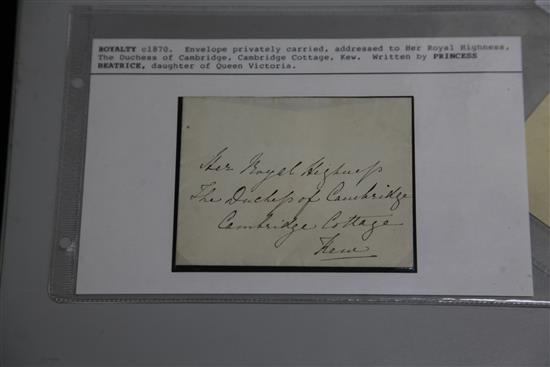 ROYALTY c1870. Envelope privately carried, addressed to Her Royal Highness,
The Duchess of Cambridge, Cambridge Cottage, Kew. Written by PRINCESS
BEATRICE, daughter of Queen Victoria.
Her Royal Highness
The Duchess of Cambridge
Cambridge Cottage
Kew